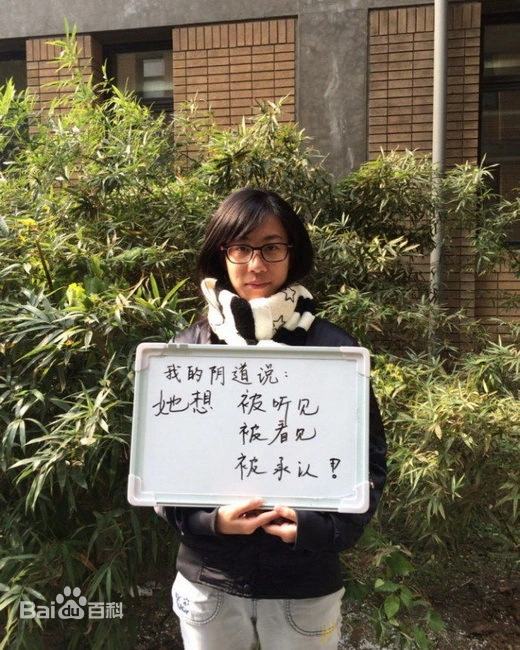 我的阴道说：
她想 被听见
被看见
被承认！
Baidu百科